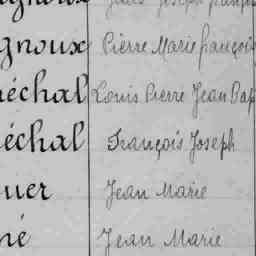 gnoux Pierre Marie françois
réchal Louis Pierre Jean Bap
réchal François Joseph
uer Jean Marie
né Jean Marie